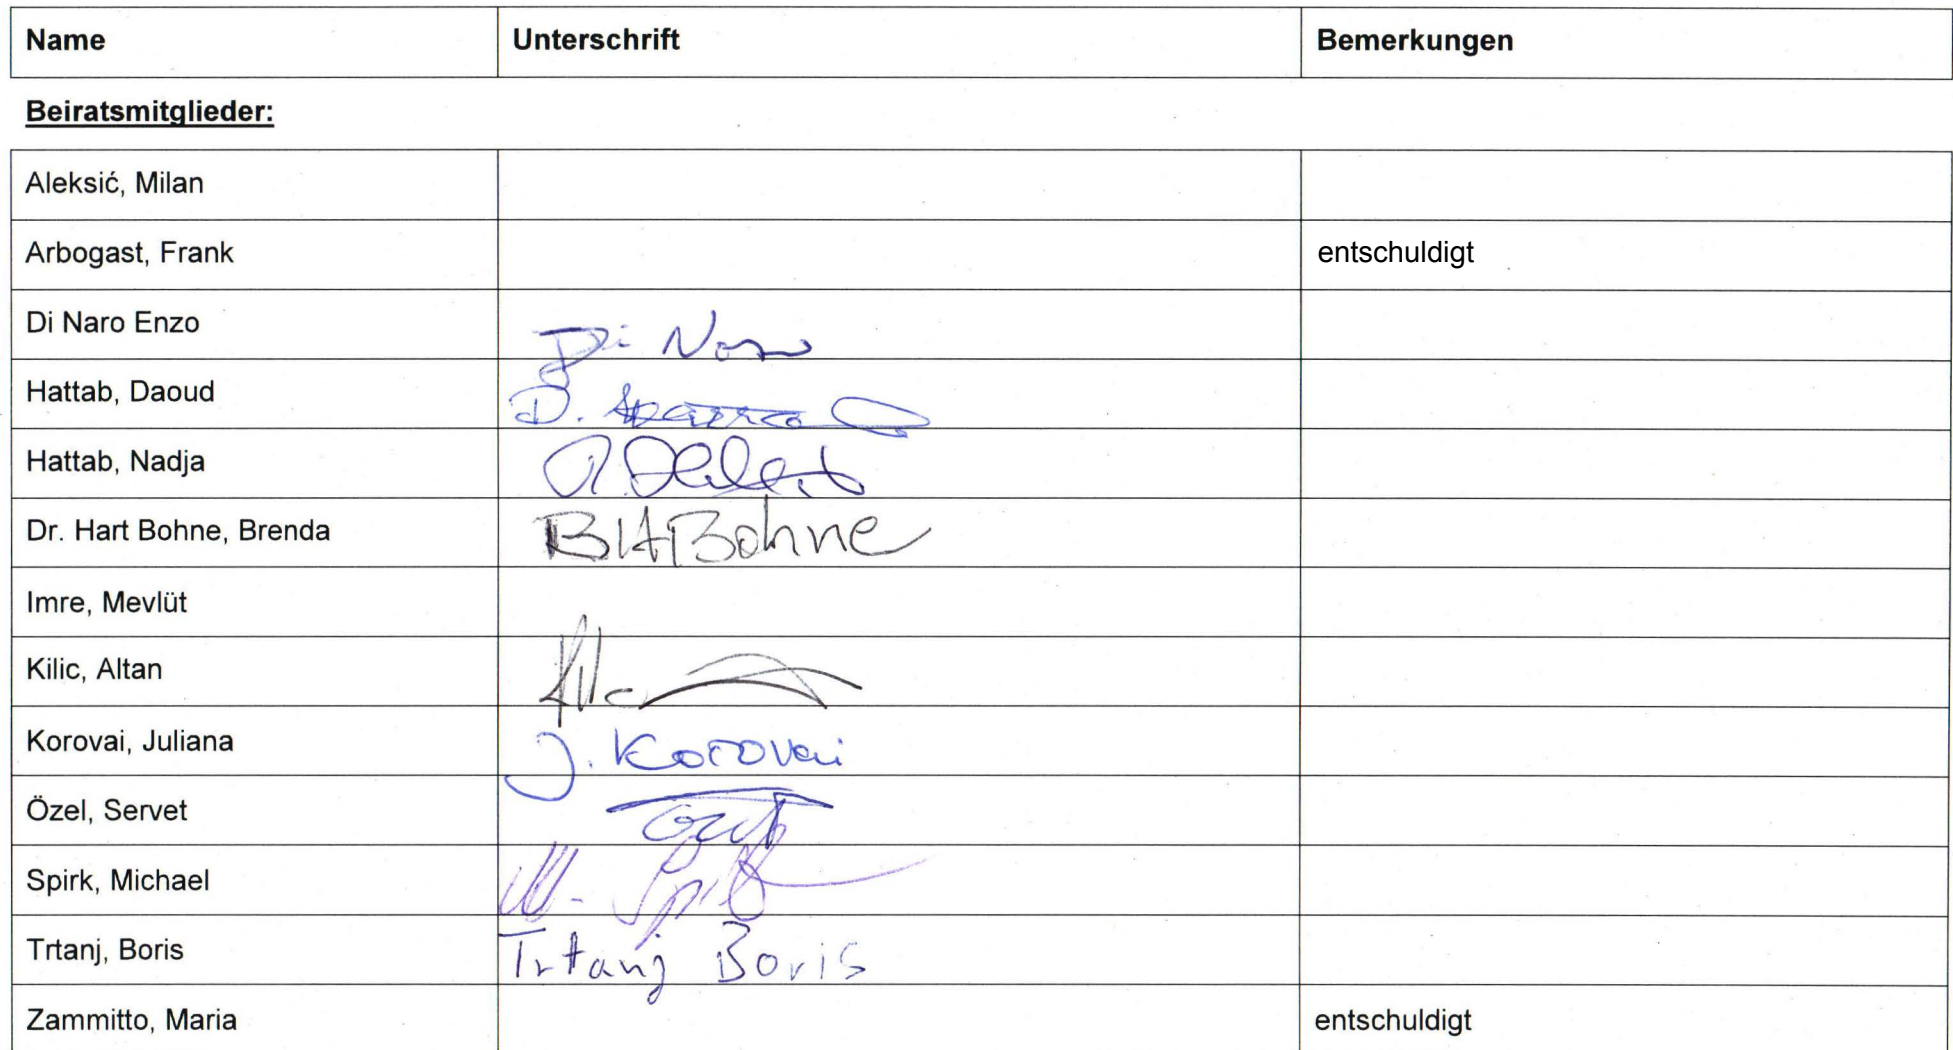 Name Unterschrift Bemerkungen
Beiratsmitglieder:
Aleksić, Milan
Arbogast, Frank entschuldigt
Di Naro Enzo Di Naro
Hattab, Daoud D.
Hattab, Nadja
Dr. Hart Bohne, Brenda BHBohne
Imre, Mevlüt
Kilic, Altan
Korovai, Juliana J. Korovai
Özel, Servet
Spirk, Michael M. Spirk
Trtanj, Boris Trtanj Boris
Zammitto, Maria entschuldigt